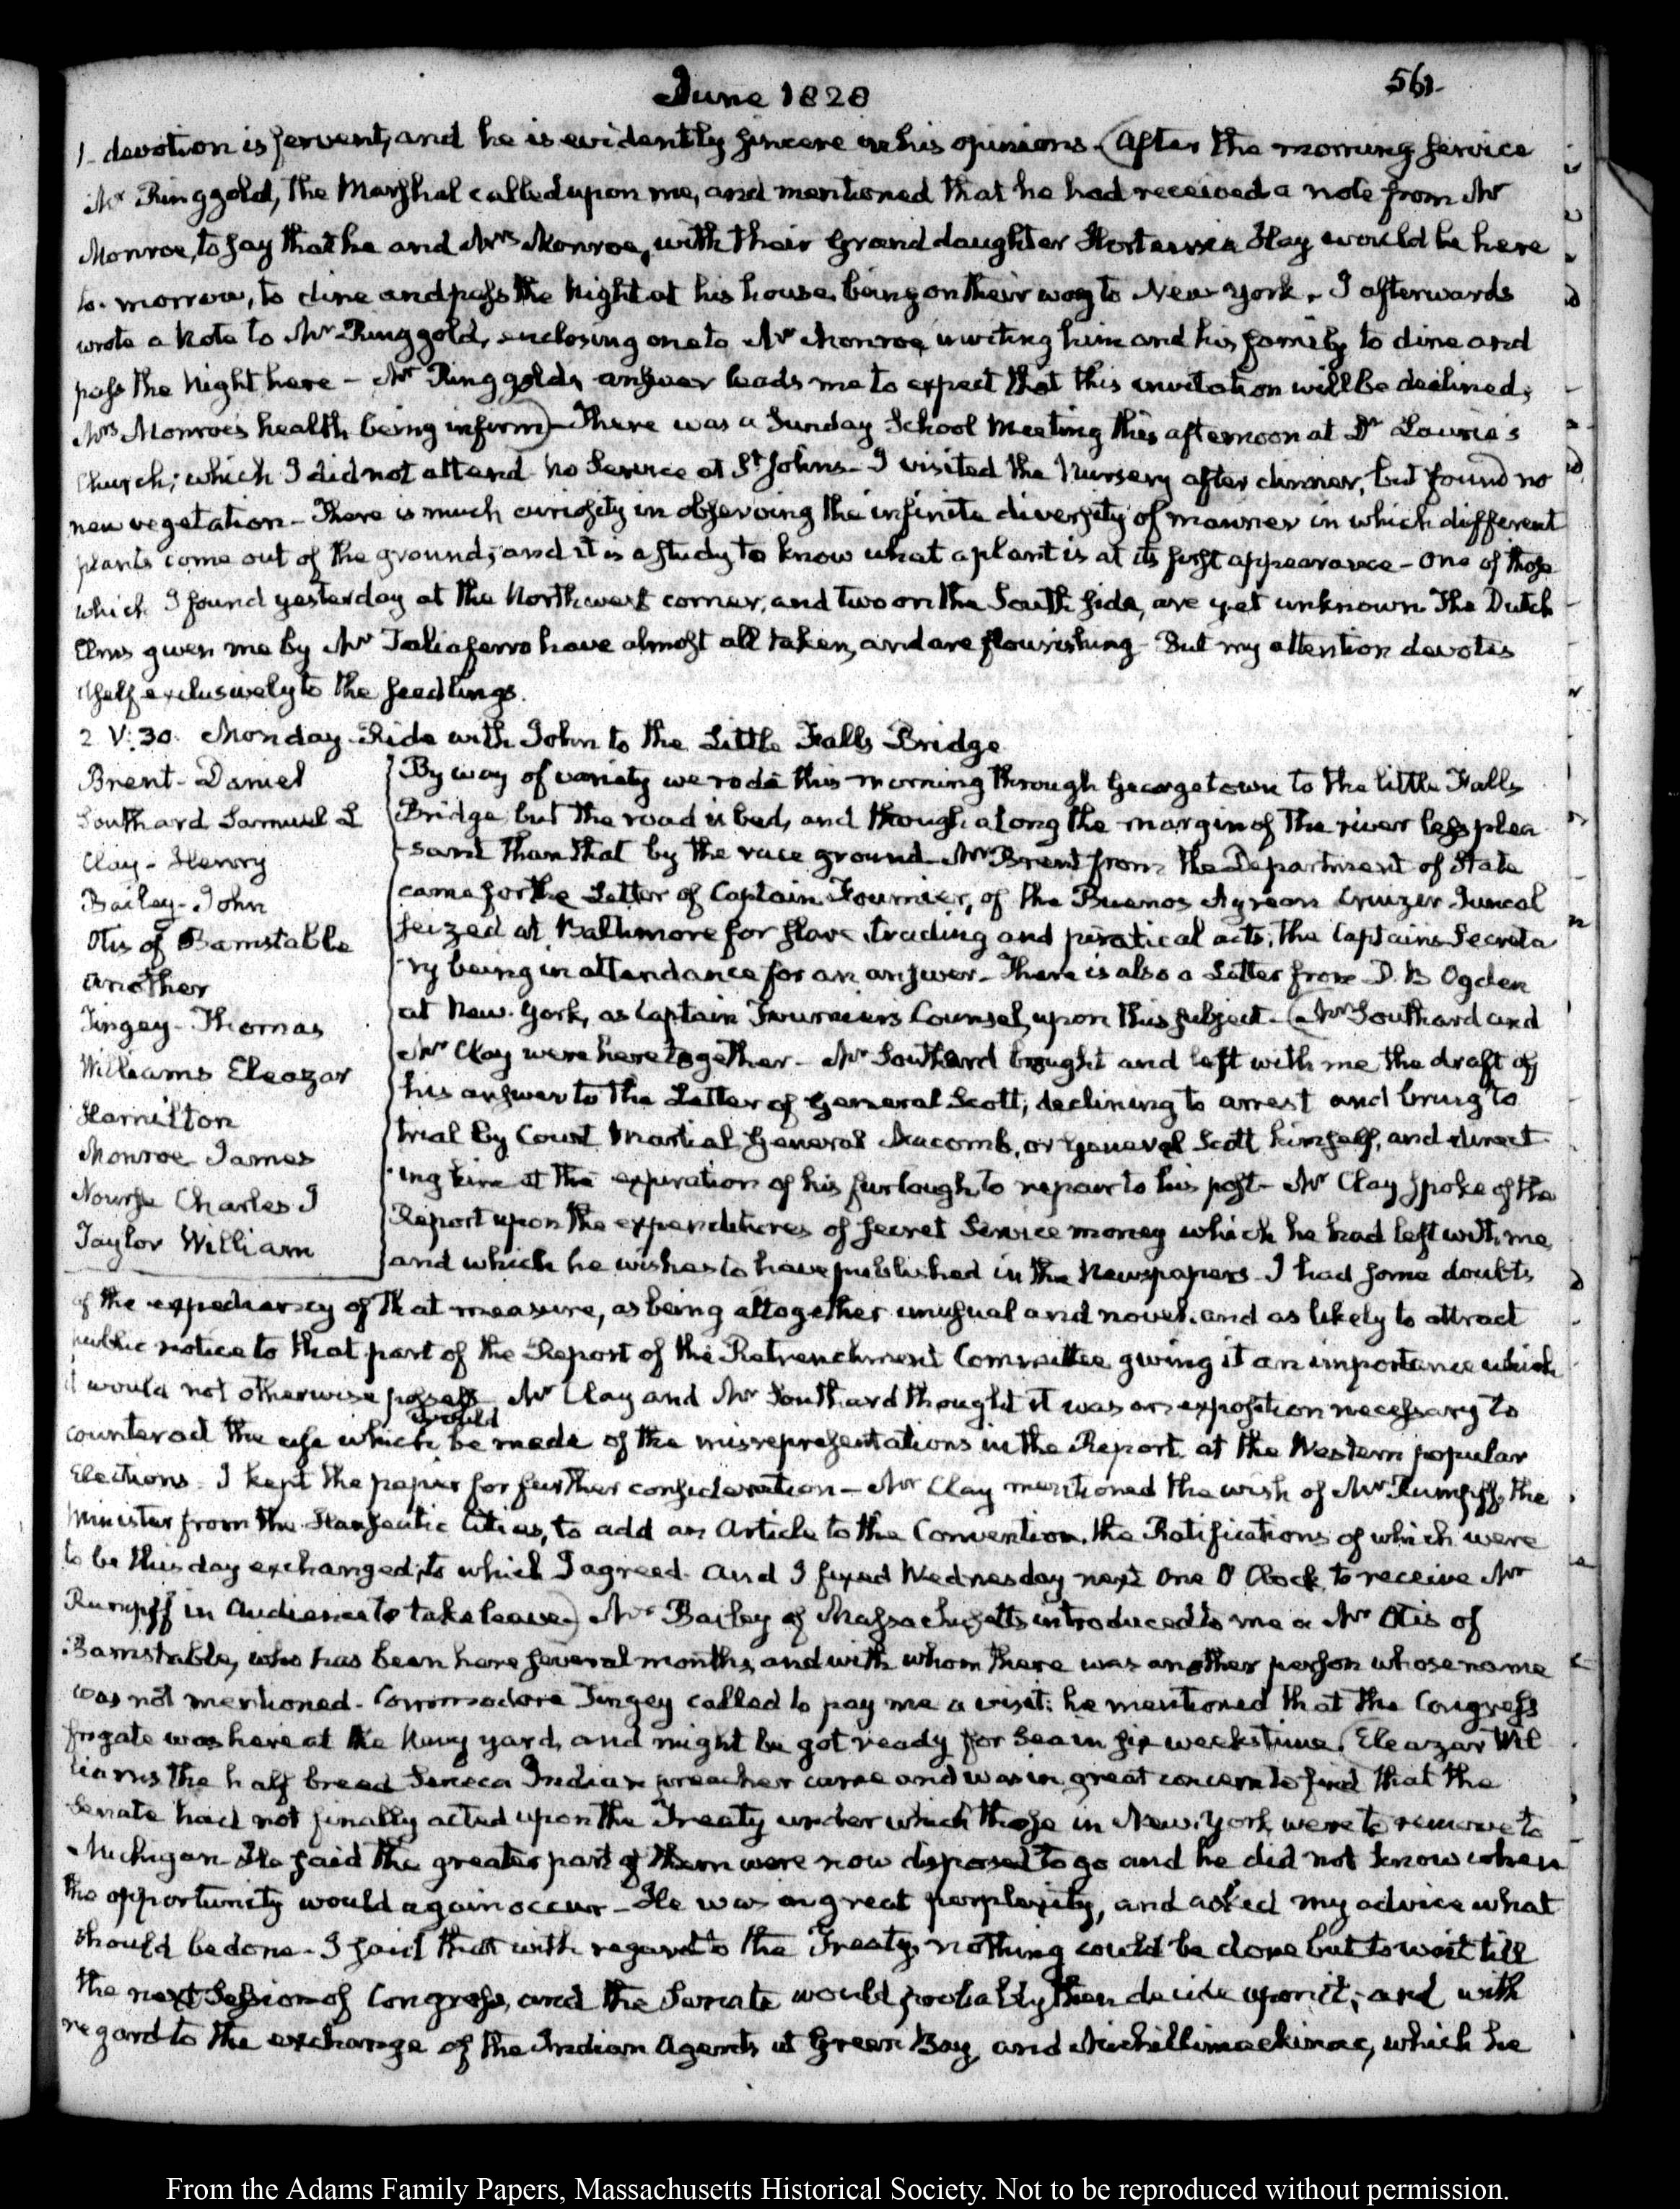 June 1828
561.
1. devotion is fervent, and he is evidently sincere in his opinions. (After the morning service
Mr Ringgold, the Marshal called upon me, and mentioned that he had received a note from Mr
Monroe, to say that he and Mrs Monroe, with their Grand daughter Hortensia Hay would be here
to-morrow, to dine and pass the Night at his house, being on their way to New York. I afterwards
wrote a Note to Mr Ringgold, enclosing one to Mr Monroe, inviting him and his family to dine and
pass the Night here — Mr Ringgold's answer leads me to expect that this invitation will be declined;
Mrs Monroe's health being infirm) There was a Sunday School Meeting this afternoon at Dr Laurie's
Church; which I did not attend. No Service at St. Johns. I visited the Nursery after dinner, but found no
new vegetation. There is much curiosity in observing the infinite diversity of manner in which different
plants come out of the ground; and it is a study to know what a plant is at its first appearance — One of those
which I found yesterday at the Northwest corner, and two on the South side, are yet unknown. The Dutch
Elms given me by Mr Taliaferro have almost all taken, and are flourishing. But my attention devotes
itself exclusively to the seedlings.
2. V:30. Monday. Ride with John to the Little Falls Bridge
Brent- Daniel
Southard Samuel L
Clay- Henry
Bailey- John
Otis of Barnstable
another
Tingey- Thomas
Williams Eleazar
Hamilton
Monroe James
Nourse Charles J
Taylor William
By way of variety we rode this morning through Georgetown to the little Falls
Bridge, but the road is bad, and though along the margin of the river less plea
-sant than that by the race ground. Mr Brent from the Department of State
came for the Letter of Captain Fournier, of the Buenos Ayrean Cruizer Juncal
seized at Baltimore for slave trading and piratical acts; the Captains Secreta
-ry being in attendance for an answer. There is also a Letter from D. B Ogden
at New-York, as Captain Fournier's Counsel, upon this subject. (Mr Southard and
Mr Clay were here together. Mr Southard brought and left with me the draft of
his answer to the Letter of General Scott; declining to arrest and bring to
trial by Court Martial General Macomb, or General Scott himself, and direct-
-ing him at the expiration of his furlough, to repair to his post. Mr Clay spoke of the
Report upon the expenditures of secret Service money which he had left with me
and which he wishes to have published in the Newspapers. I had some doubts
of the expediency of that measure, as being altogether unusual and novel. and as likely to attract
public notice to that part of the Report of the Retrenchment Committee giving it an importance which
it would not otherwise possess. Mr Clay and Mr Southard thought it was an exposition necessary to
counteract the use which would be made of the misrepresentations in the Report at the Western popular
Elections. I kept the paper for further consideration — Mr Clay mentioned the wish of Mr Rumpff, the
Minister from the Hanseatic Cities, to add an Article to the Convention, the Ratifications of which were
to be this day exchanged; to which I agreed. And I fixed Wednesday next One O'Clock, to receive Mr
Rumpff in Audience to take leave.) Mr Bailey of Massachusetts introduced to me a Mr Otis of
Barnstable, who has been here several months, and with whom there was another person whose name
was not mentioned. Commodore Tingey called to pay me a visit: he mentioned that the Congress
frigate was here at the Navy yard, and might be got ready for Sea in six weeks time. (Eleazar Wil
liams the half breed Seneca Indian preacher came and was in great concern to find that the
Senate had not finally acted upon the Treaty under which those in New-York were to remove to
Michigan. He said the greater part of them were now disposed to go and he did not know when
the opportunity would again occur. He was in great perplexity, and asked my advice what
should be done. I said that with regard to the Treaty, nothing could be done but to wait till
the next Session of Congress, and the Senate would probably then decide upon it; and with
regard to the exchange of the Indian Agents at Green Bay, and Michillimackinac, which he
From the Adams Family Papers, Massachusetts Historical Society. Not to be reproduced without permission.